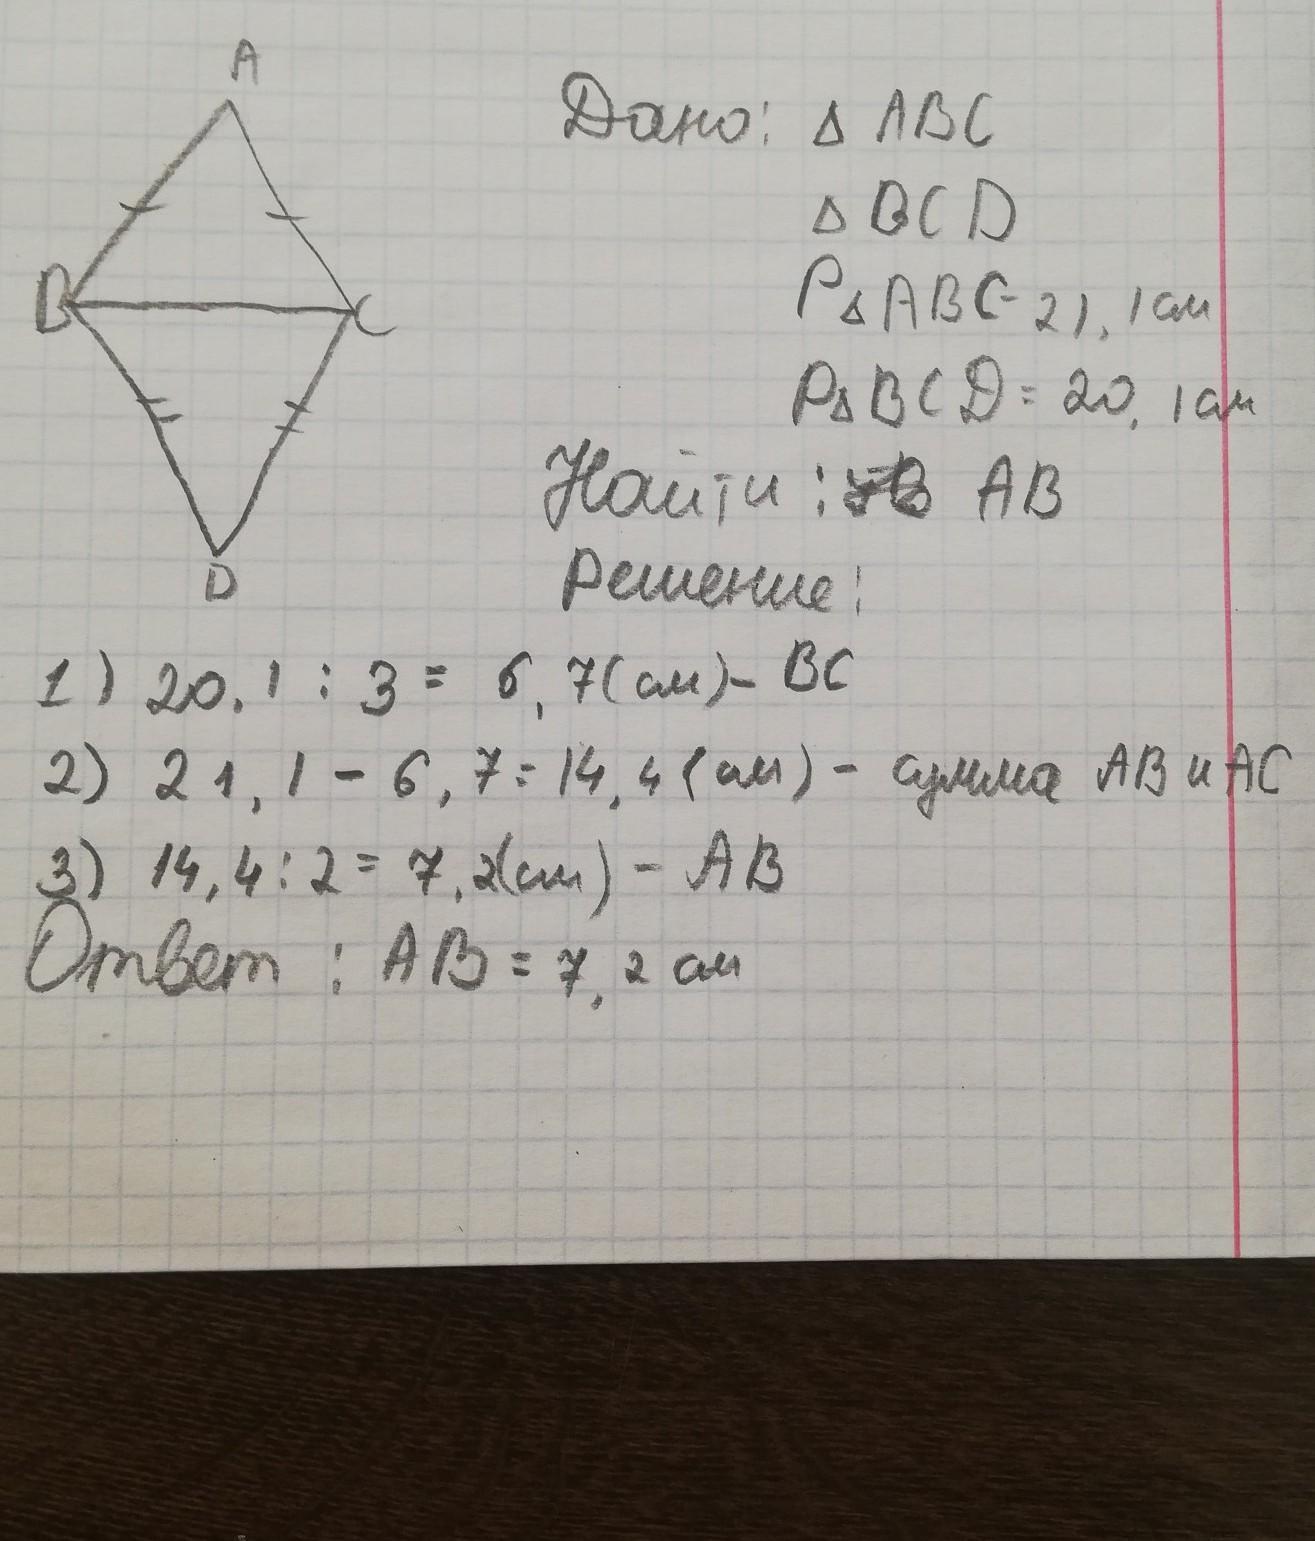 A
B
C
D
Дано: Δ ABC
Δ BCD
PΔABC - 21,1см
PΔBCD = 20,1см
Найти: AB
Решение:
1) 20,1 : 3 = 6,7(см) - BC
2) 21,1 - 6,7 = 14,4(см) - сумма AB и AC
3) 14,4 : 2 = 7,2(см) - AB
Ответ : AB = 7,2 см